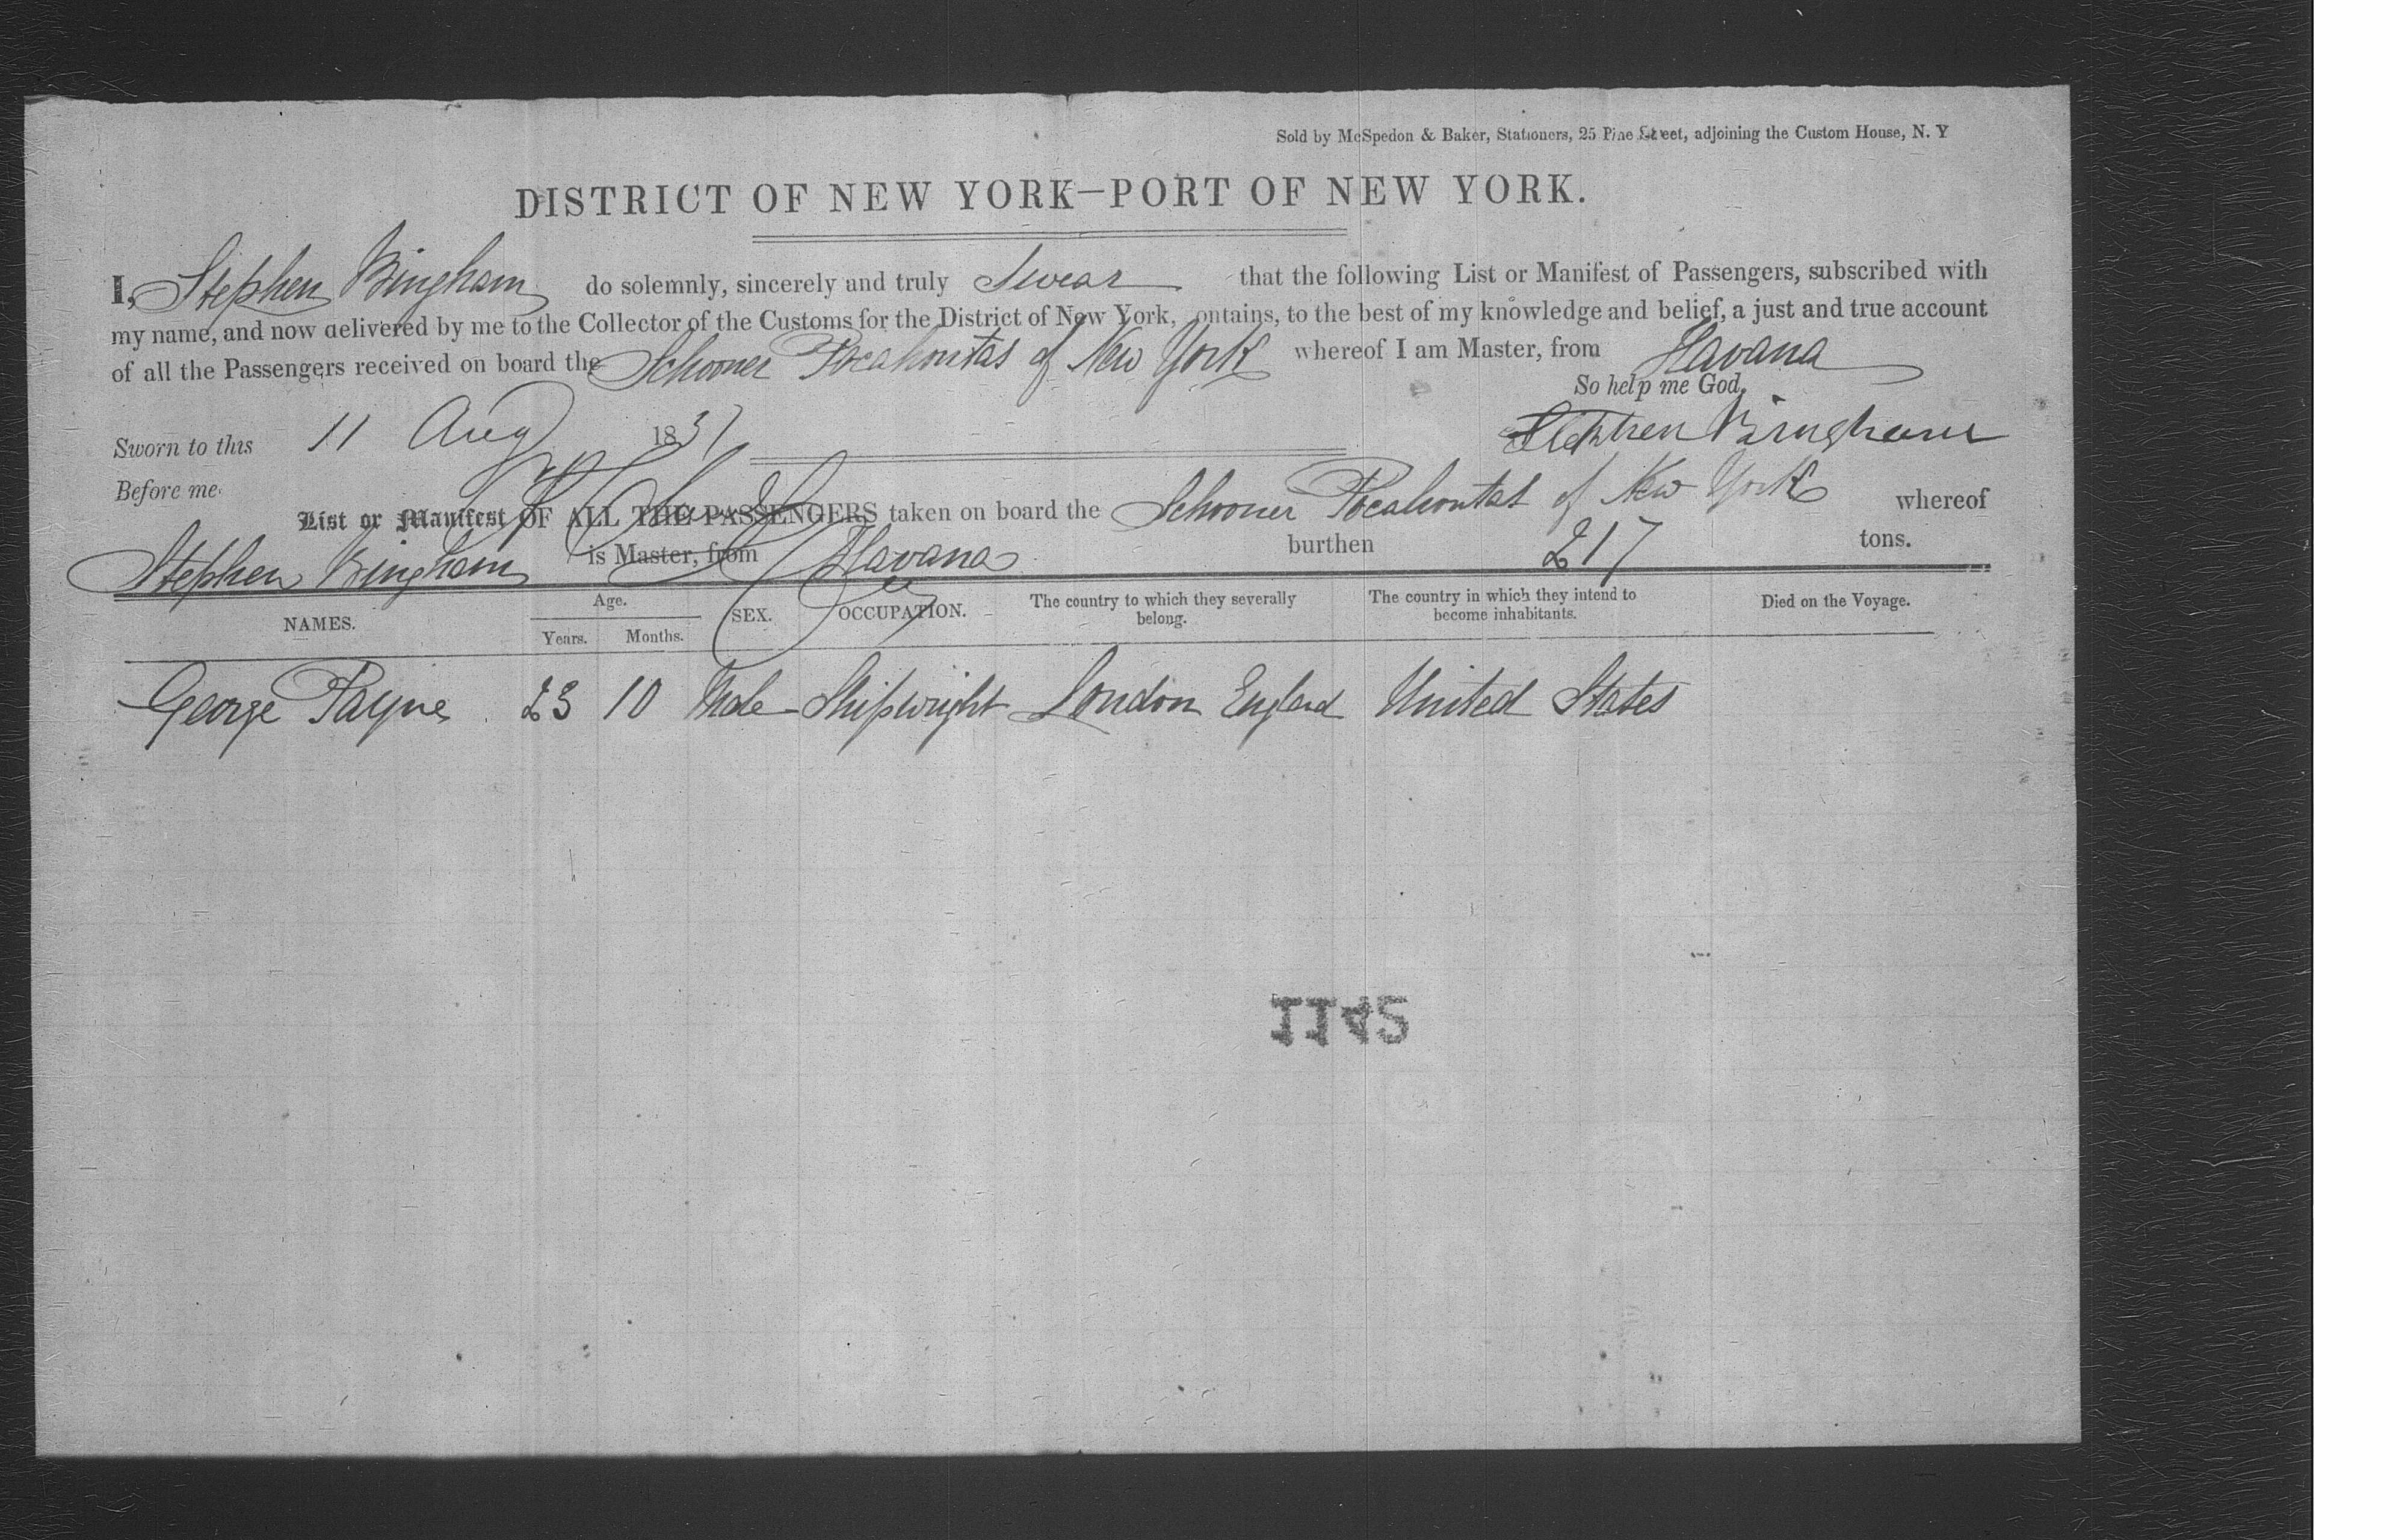 Sold by McSpedon & Baker, Stationers, 25 Pine Street, adjoining the Custom House, N. Y
DISTRICT OF NEW YORK—PORT OF NEW YORK.
I, Stephen Bingham do solemnly, sincerely and truly Swear that the following List or Manifest of Passengers, subscribed with
my name, and now delivered by me to the Collector of the Customs for the District of New York, ontains, to the best of my knowledge and belief, a just and true account
of all the Passengers received on board the Schooner Pocahontas of New York whereof I am Master, from Havana
So help me God.
Sworn to this 11 Aug 1831 Stephen Bingham
Before me
List or Manifest OF ALL THE PASSENGERS taken on board the Schooner Pocahontas of New York whereof
Stephen Bingham is Master, from Havana burthen 217 tons.
NAMES. Age. Years. Months. SEX. OCCUPATION. The country to which they severally belong. The country in which they intend to become inhabitants. Died on the Voyage.
George Payne 23 10 Male Shipwright London England United States
1145